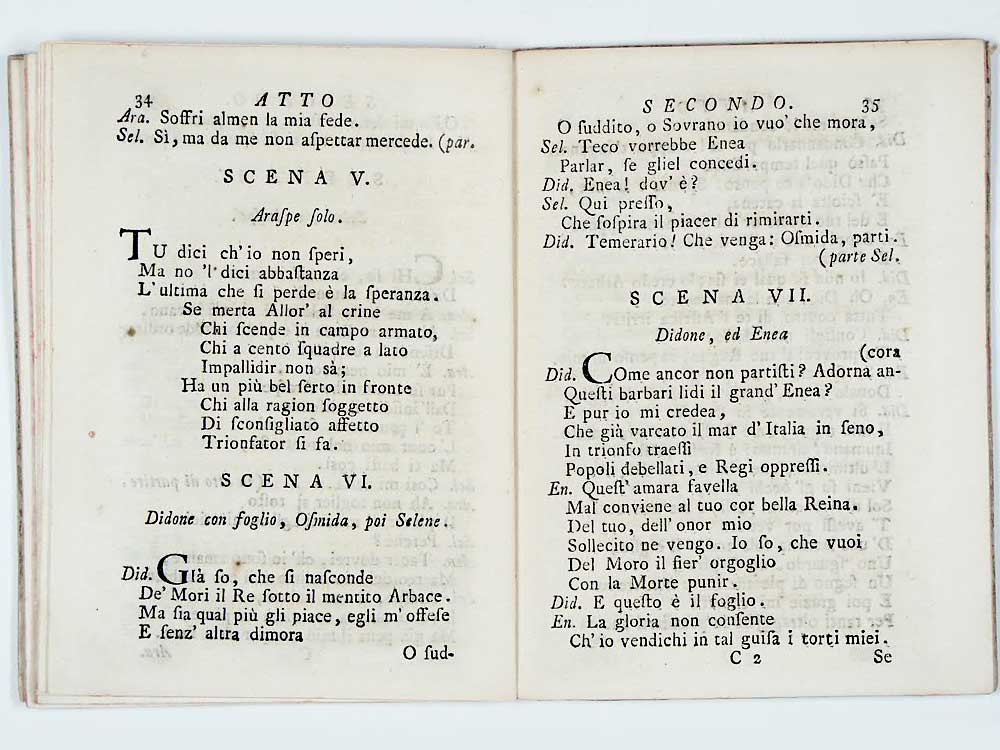 34 ATTO
Ara. Soffri almen la mia fede.
Sel. Sì, ma da me non aſpettar mercede. (par.
SCENA V.
Araſpe ſolo.
TU dici ch' io non ſperi,
Ma no 'l dici abbaſtanza
L'ultima che ſi perde è la ſperanza.
Se merta Allor' al crine
Chi ſcende in campo armato,
Chi a cento ſquadre a lato
Impallidir non sà;
Ha un più bel ſerto in fronte
Chi alla ragion ſoggetto
Di ſconſigliato affetto
Trionfator ſi fa.
SCENA VI.
Didone con foglio, Oſmida, poi Selene.
Did. GIà ſo, che ſi naſconde
De' Mori il Re ſotto il mentito Arbace.
Ma ſia qual più gli piace, egli m' offeſe
E ſenz' altra dimora
O ſud-
SECONDO. 35
O ſuddito, o Sovrano io vuo' che mora,
Sel. Teco vorrebbe Enea
Parlar, ſe gliel concedi.
Did. Enea! dov' è?
Sel. Qui preſſo,
Che ſoſpira il piacer di rimirarti.
Did. Temerario! Che venga: Oſmida, parti.
(parte Sel.
SCENA VII.
Didone, ed Enea
(cora
Did. COme ancor non partiſti? Adorna an-
Queſti barbari lidi il grand' Enea?
E pur io mi credea,
Che già varcato il mar d' Italia in ſeno,
In trionfo traeſſi
Popoli debellati, e Regi oppreſſi.
En. Queſt' amara favella
Mal conviene al tuo cor bella Reina.
Del tuo, dell' onor mio
Sollecito ne vengo. Io ſo, che vuoi
Del Moro il fier' orgoglio
Con la Morte punir.
Did. E queſto è il foglio.
En. La gloria non conſente
Ch' io vendichi in tal guiſa i torti miei.
C 2 Se